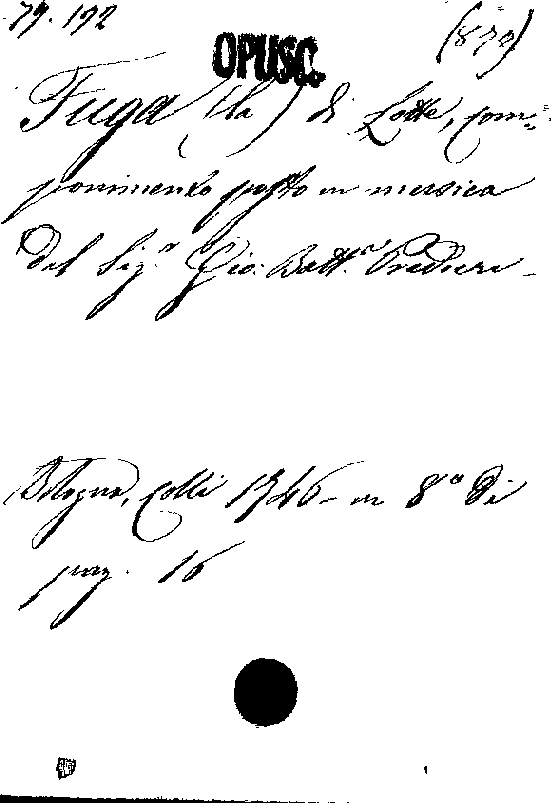 79.192
(870)
OPUSC.
Fuga (la) di Lotte, com=
ponimento posto in musica
del Sig.r Gio: Batt.a Predieri -
Bologna, Colli 1746 - in 8° di
pag. 16